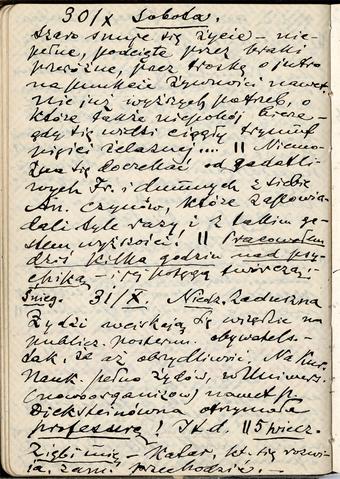 30/X Sobota.
Szaro snuje się życie – nie-
pełne, podcięte przez braki
przeróżne, przez troskę o jutro
na punkcie żywności nawet
nie już wyższych potrzeb, o
które także niepokój bierze,
gdy się widzi ciągły tryumf
pięści żelaznej... || Niemo-
żna się doczekać od gadatli-
wych Fr. i dumnych z siebie
An. czynów, które zapowia-
dali tyle razy, i z takim ge-
stem wyższości! || Pracowałem
dziś kilka godzin nad psy-
chiką – i jej potęgą twórczą!
Śnieg. 31/X. Niedz. Zaduszna
Żydzi wciskają się wszędzie na
publicz. posterun. obywatels.
tak, że aż obrydliwie. Na Kur.
Nauk. pełno żydów, w Uniwers.
(nowoorganizow) nawet p.
Dicksteinówna otrzymała
profesurę! Itd. || 5 wiecz.
Ziębi mię – Katar, kt. się rozwi-
ja, zani przechodzić. –